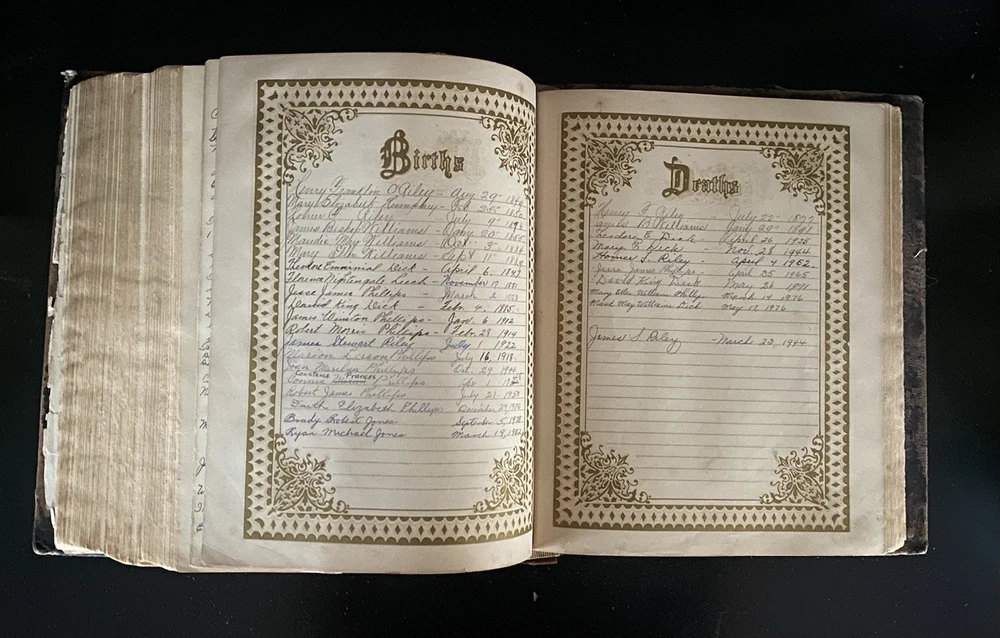 Births
Henry Franklin O'Riley - Aug 29
Mary Elizabeth Humphrey -
Riley - July 9
James Bishop Williams - 20
Maudie May Williams - Oct. 3
Mary Ellen Williams - Sept 11
Theodore Emmanual Dick - April 6. 1847
Florence Nightengale Leech - November 17. 1851
Jesse James Phillips - March 2
David King Dick Febr. 4. 1885
James Winston Phillips - Jan. 6 1912
Robert Morris Phillips - Feb. 28 1914
James Stewart Riley July 1 1922
Marion Phillips July 16, 1918
Joan Marilyn Phillips Oct. 29, 1944
Constance Frances
Connie Phillips 1
Robert James Phillips July 21
Faith Elizabeth Phillips December
Brady Robert Jones September 5,
Ryan Michael Jones March 19,
Deaths
Henry F. Riley - July 22 -
James B Williams June 29
Theodore E. Dick - April 26 1925
Mary E. Dick - Nov. 28 1944
Homer L. Riley - April 4 1952.
Jesse James Phillips - April 25 1965
David King Dick May 26 1971
Mary Ellen William Phillips March 14 1976
May Williams Dick May 17 1976
James S. Riley - March 23, 1944